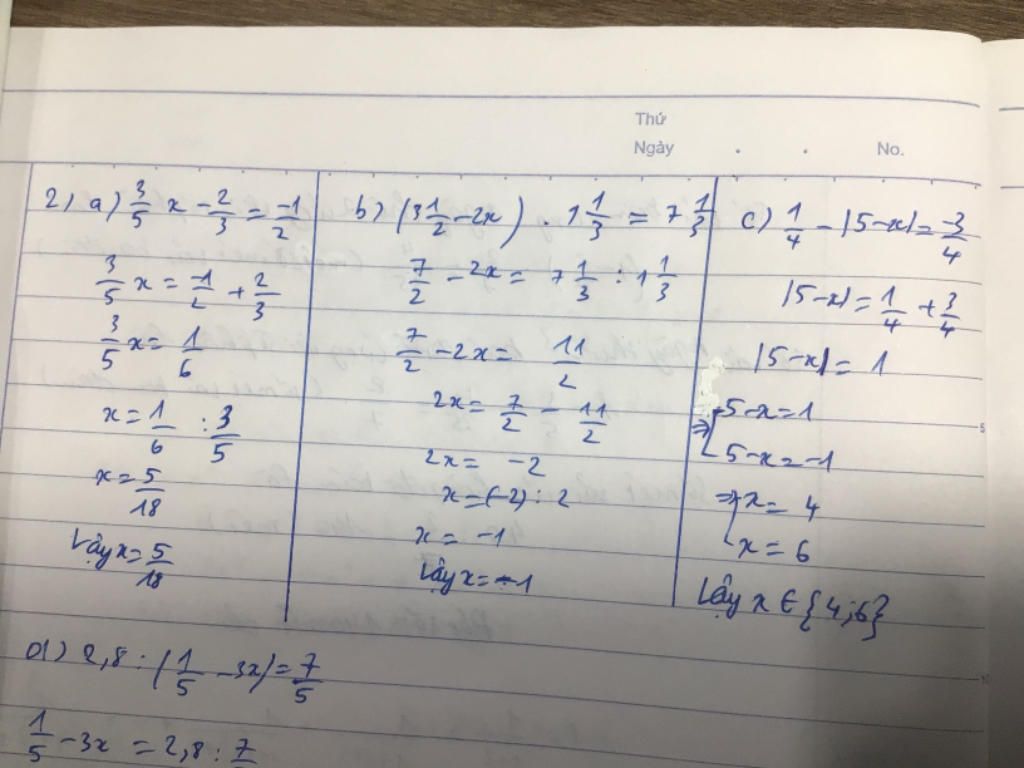 Thứ
Ngày . . No.
2) a) 3/5 x - 2/3 = -1/2
3/5 x = -1/2 + 2/3
3/5 x = 1/6
x = 1/6 : 3/5
x = 5/18
Vậy x = 5/18
b) (3 1/2 - 2x) . 1 1/3 = 7 1/3
7/2 - 2x = 7 1/3 : 1 1/3
7/2 - 2x = 11/2
2x = 7/2 - 11/2
2x = -2
x = (-2) : 2
x = -1
Vậy x = -1
c) 1/4 - |5-x| = -3/4
|5-x| = 1/4 + 3/4
|5-x| = 1
⇒ [ 5-x = 1
5-x = -1
⇒ [ x = 4
x = 6
Vậy x ∈ {4;6}
d) 2,8 : (1/5 - 3x) = 7/5
1/5 - 3x = 2,8 : 7/5